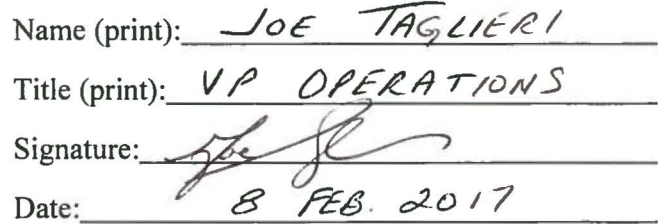 Name (print): JOE TAGLIERI
Title (print): VP OPERATIONS
Signature: Joe
Date: 8 FEB. 2017